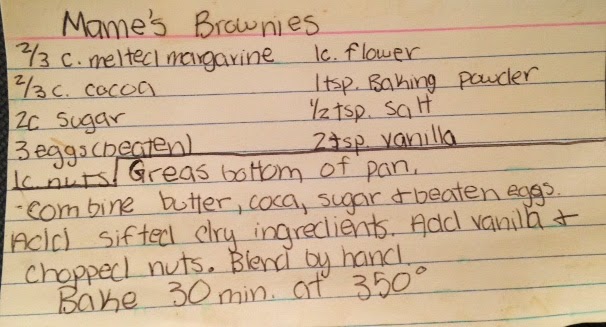 Mame's Brownies
2/3 c. melted margarine 1c. flower
2/3 c. cocoa 1tsp. Baking powder
2c sugar 1/2 tsp. salt
3 eggs (beaten) 2tsp. vanilla
1c. nuts Greas bottom of pan.
-combine butter, coca, sugar + beaten eggs.
Add sifted dry ingredients. Add vanilla +
chopped nuts. Blend by hand.
Bake 30 min. at 350°